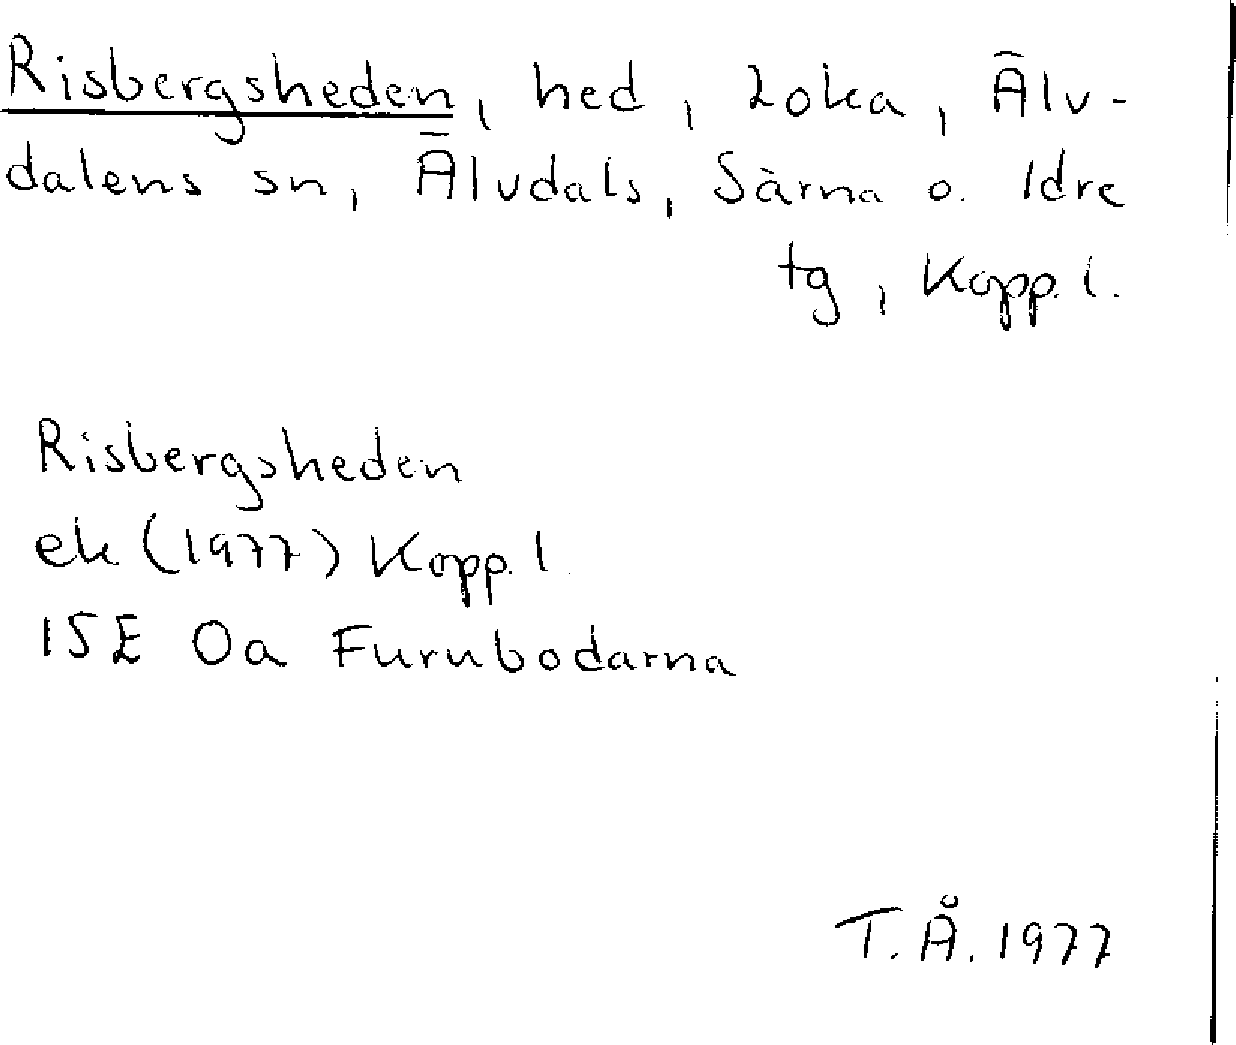 Risbergsheden, hed, Loka, Älv-
dalens sn, Älvdals, Särna o. Idre
tg, Kopp. l.
Risbergsheden
ek (1977) Kopp. l.
15E 0a Furubodarna
T.Å. 1977